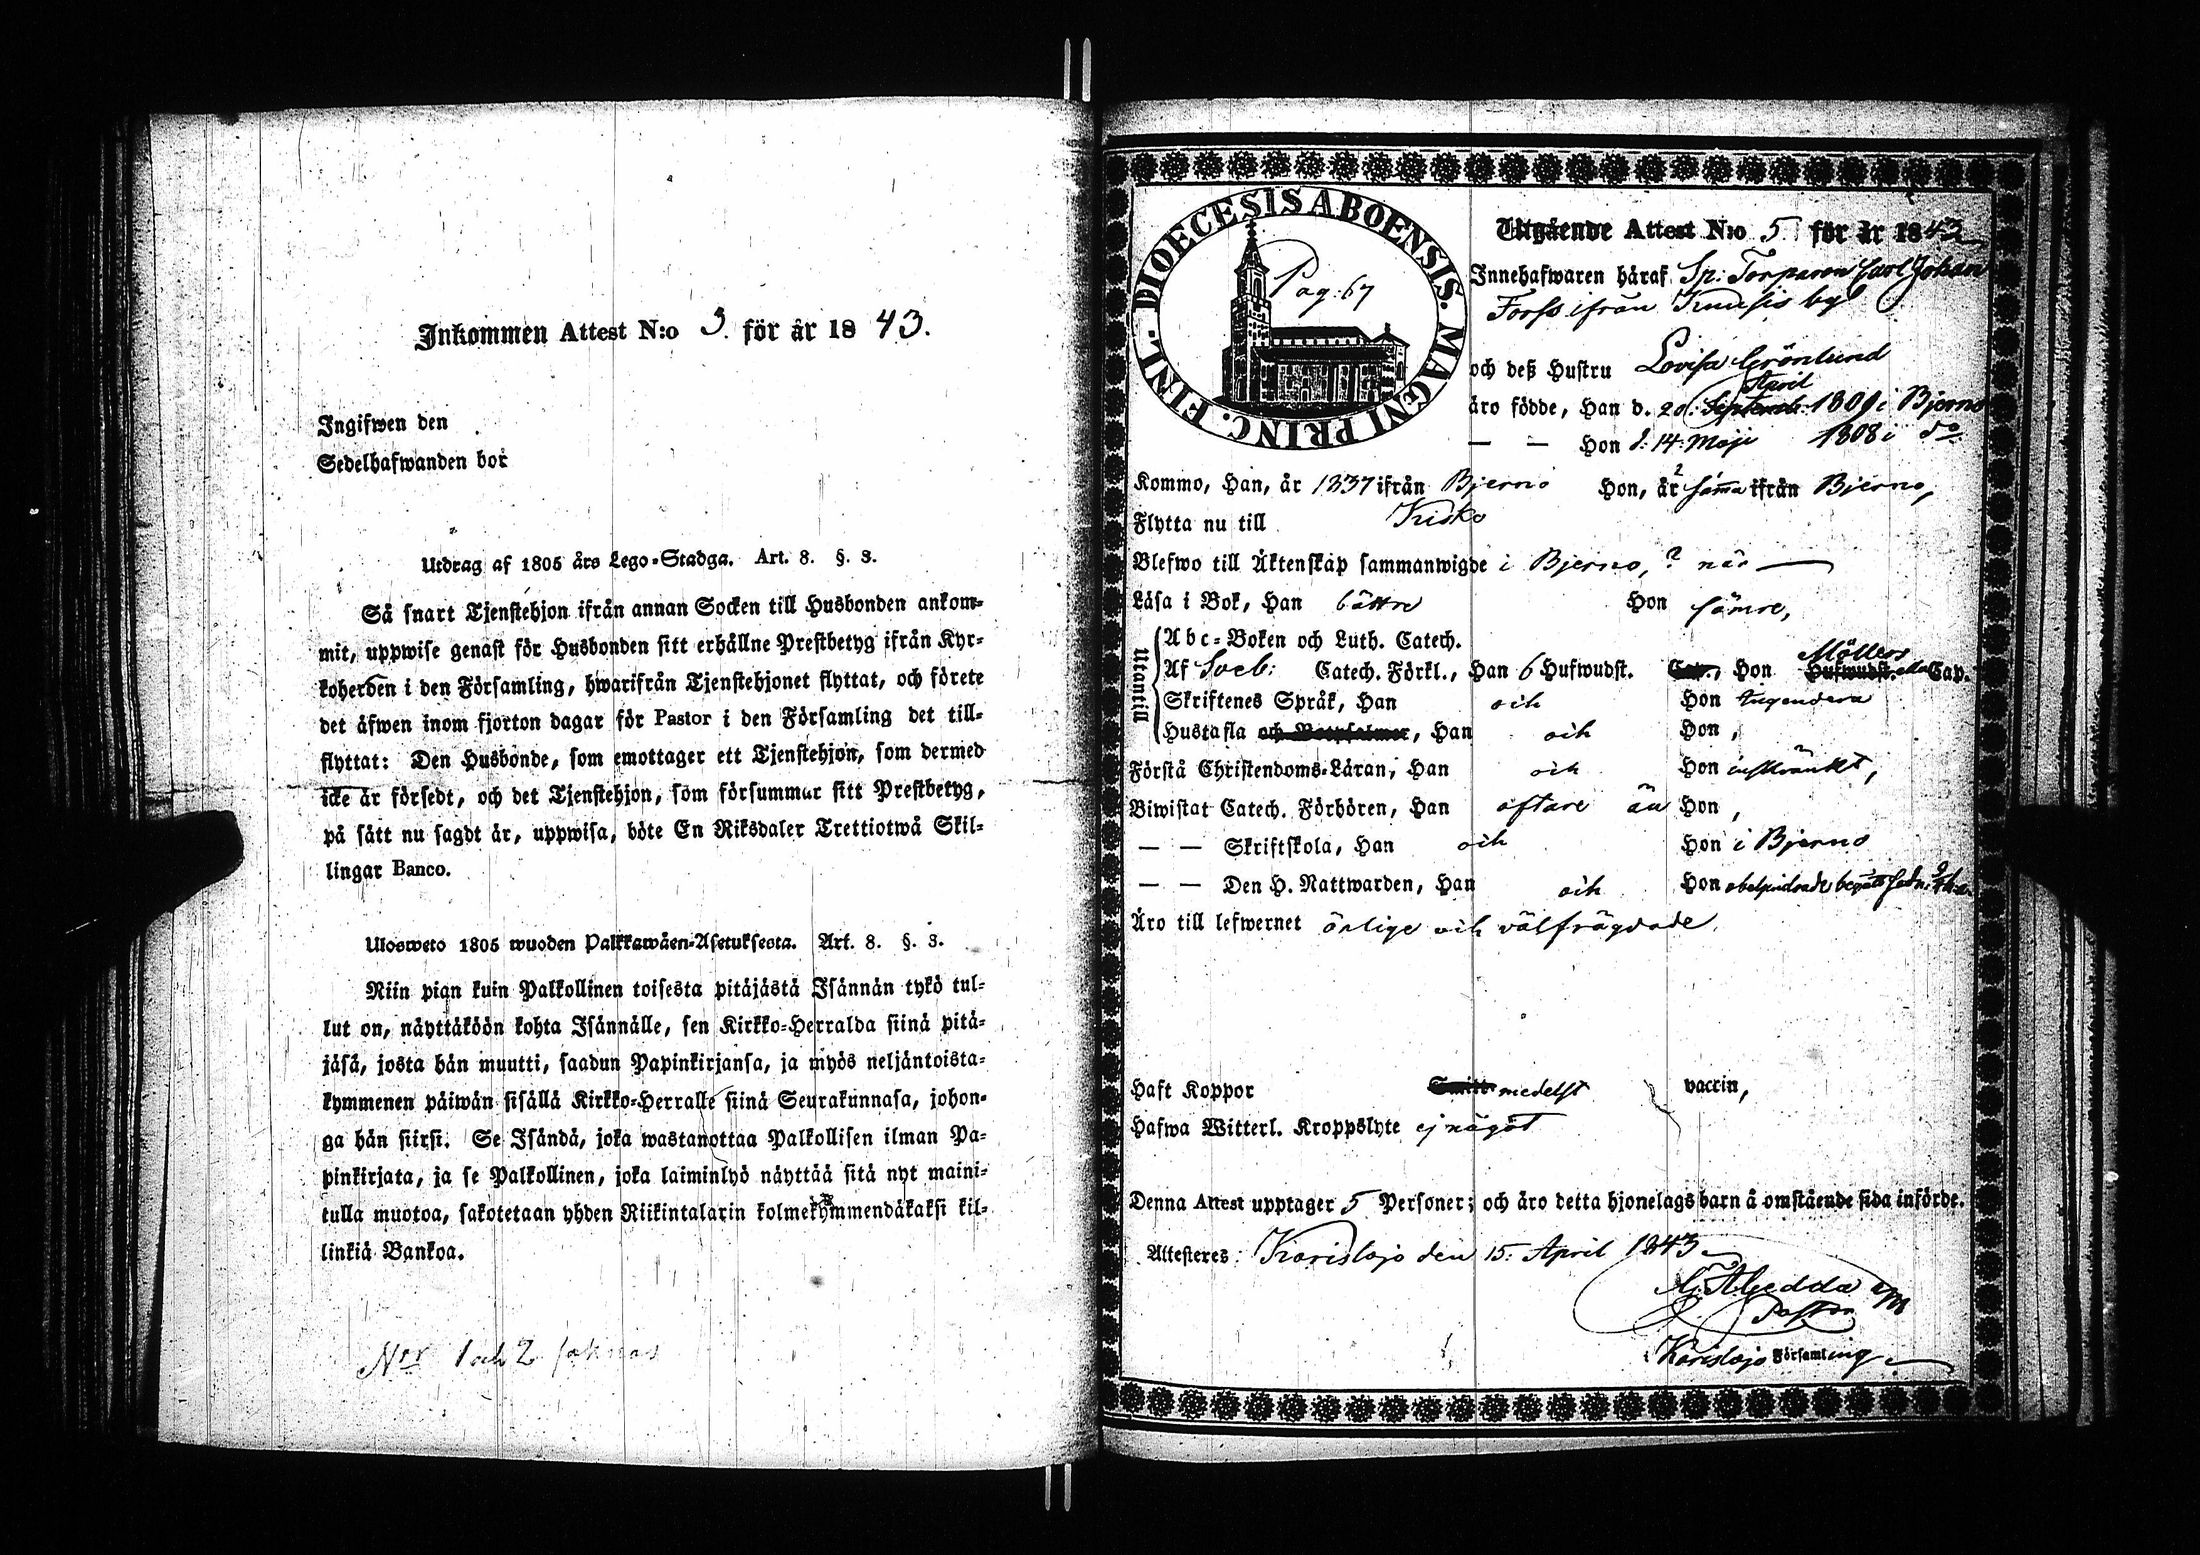 Inkommen Attest N:o 3. för år 1843.
Ingifwen den
Sedelhafwanden bor
Utdrag af 1805 års Lego-Stadga. Art. 8. §. 3.
Så snart Tjenstehjon ifrån annan Socken till Husbonden ankom-
mit, uppwise genast för Husbonden sitt erhållne Prestbetyg ifrån Kyr-
koherden i den Församling, hwarifrån Tjenstehjonet flyttat, och förete
det äfwen inom fjorton dagar för Pastor i den Församling det till-
flyttat: Den Husbonde, som emottager ett Tjenstehjon, som dermed
icke är försedt, och det Tjenstehjon, som försummar sitt Prestbetyg,
på sätt nu sagdt är, uppwisa, böte En Riksdaler Trettiotwå Skil-
lingar Banco.
Ulosweto 1805 wuoden Palkkawäen-Asetuksesta. Art. 8. §. 3.
Niin pian kuin Palkollinen toisesta pitäjästä Isännän tykö tul-
lut on, näyttäköön kohta Isännälle, sen Kirkko-Herralda siinä pitä-
jäsä, josta hän muutti, saadun Papinkirjansa, ja myös neljäntoista-
kymmenen päiwän sisällä Kirkko-Herralle siinä Seurakunnasa, johon-
ga hän siirsi. Se Isändä, joka wastanottaa Palkollisen ilman Pa-
pinkirjata, ja se Palkollinen, joka laiminlyö näyttää sitä nyt maini-
tulla muotoa, sakotetaan yhden Riikintalarin kolmekymmendäkaksi kil-
linkiä Bankoa.
Nr 1 och 2 saknas
DIOECESIS ABOENSIS. MAGNI PRINC. FINL.
Pag: 67
Utgående Attest N:o 5. för år 1843
Innehafwaren häraf Sp: Torparen Carl Johan
Forss ifrån by
och deß Hustru Lovisa Grönlund
April
äro födde, Han d. 20 Septemb: 1809 i Bjerno
— — Hon d. 14. Maji 1808 i do
Kommo, Han, år 1837 ifrån Bjerno Hon, år samma ifrån Bjerno,
Flytta nu till Kisko
Blefwo till Äktenskap sammanwigde i Bjerno, ? när —
Läsa i Bok, Han bättre Hon sämre,
Utantill
Abc-Boken och Luth. Catech.
Möllers
Af Sveb: Catech. Förkl., Han 6 Hufwudst. Cap., Hon Hufwudst. Cap.
Skriftenes Språk, Han och Hon ingendera
Hustafla och Botpsalmer, Han och Hon,
Förstå Christendoms-Läran, Han och Hon inskränkt,
Biwistat Catech. Förhören, Han oftare än Hon,
— — Skriftskola, Han och Hon i Bjerno
— — Den H. Nattwarden, Han och Hon
Äro till lefwernet ärlige och välfrägdade.
Haft Koppor medelst vaccin,
Hafwa Witterl. Kroppslyte ej något
Denna Attest upptager 5 Personer; och äro detta hjonelags barn å omstående sida införde.
Attesteres: Karislojo den 15. April 1843
Gedda
Pastor
i Karislojo Församling